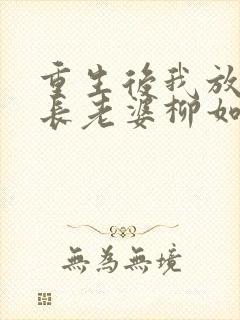 重生後我放
長老婆柳如
無為無境